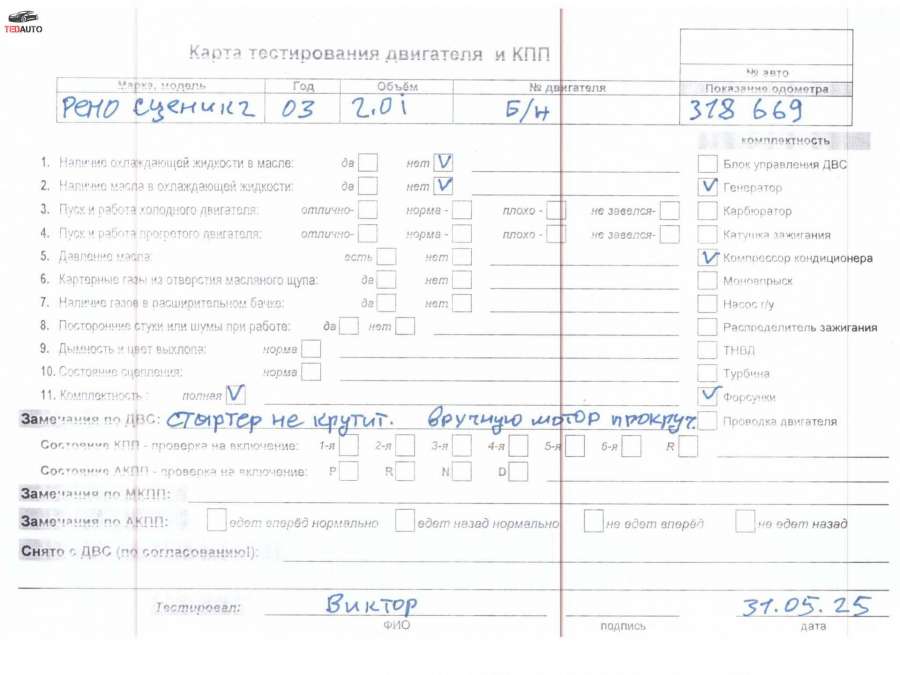 TEDAUTO
Карта тестирования двигателя и КПП
№ авто
Марка, модель Год Объём № двигателя Показание одометра
РЕНО СЦЕНИК2 03 2.0i Б/Н 318 669
комплектность
1. Наличие охлаждающей жидкости в масле: да нет V
Блок управления ДВС
2. Наличие масла в охлаждающей жидкости: да нет V
V Генератор
3. Пуск и работа холодного двигателя: отлично- норма - плохо - не завелся-
Карбюратор
4. Пуск и работа прогретого двигателя: отлично- норма - плохо - не завелся-
Катушка зажигания
5. Давление масла: есть нет
V Компрессор кондиционера
6. Картерные газы из отверстия масляного щупа: да нет
Моновпрыск
7. Наличие газов в расширительном бачке: да нет
Насос г/у
8. Посторонние стуки или шумы при работе: да нет
Распределитель зажигания
9. Дымность и цвет выхлопа: норма
ТНВД
10. Состояние сцепления: норма
Турбина
11. Комплектность : полная V
V Форсунки
Замечания по ДВС: СТЫРТЕР НЕ КРУТИТ. ВРУЧНУЮ МОТОР ПРОКРУЧ.
Проводка двигателя
Состояние КПП - проверка на включение: 1-я 2-я 3-я 4-я 5-я 6-я R
Состояние АКПП - проверка на включение: P R N D
Замечания по МКПП:
Замечания по АКПП: едет вперёд нормально едет назад нормально не едет вперёд не едет назад
Снято с ДВС (по согласованию!):
Тестировал: ВИКТОР 31.05.25
ФИО подпись дата